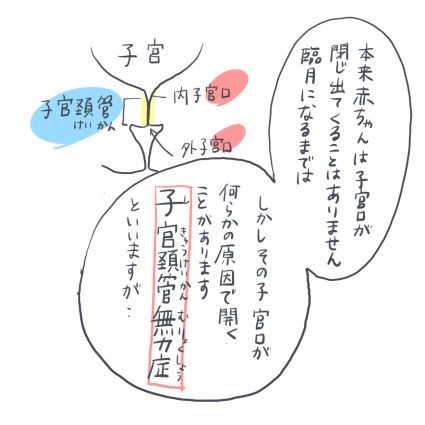 本来赤ちゃんは子宮口が
閉じ出てくることはありません
臨月になるまでは
子宮
内子宮口
子宮頚管
けいかん
外子宮口
しかしその子宮口が
何らかの原因で開く
ことがあります
子宮頚管無力症
しきゅうけいかんむりょくしょう
といいますが…